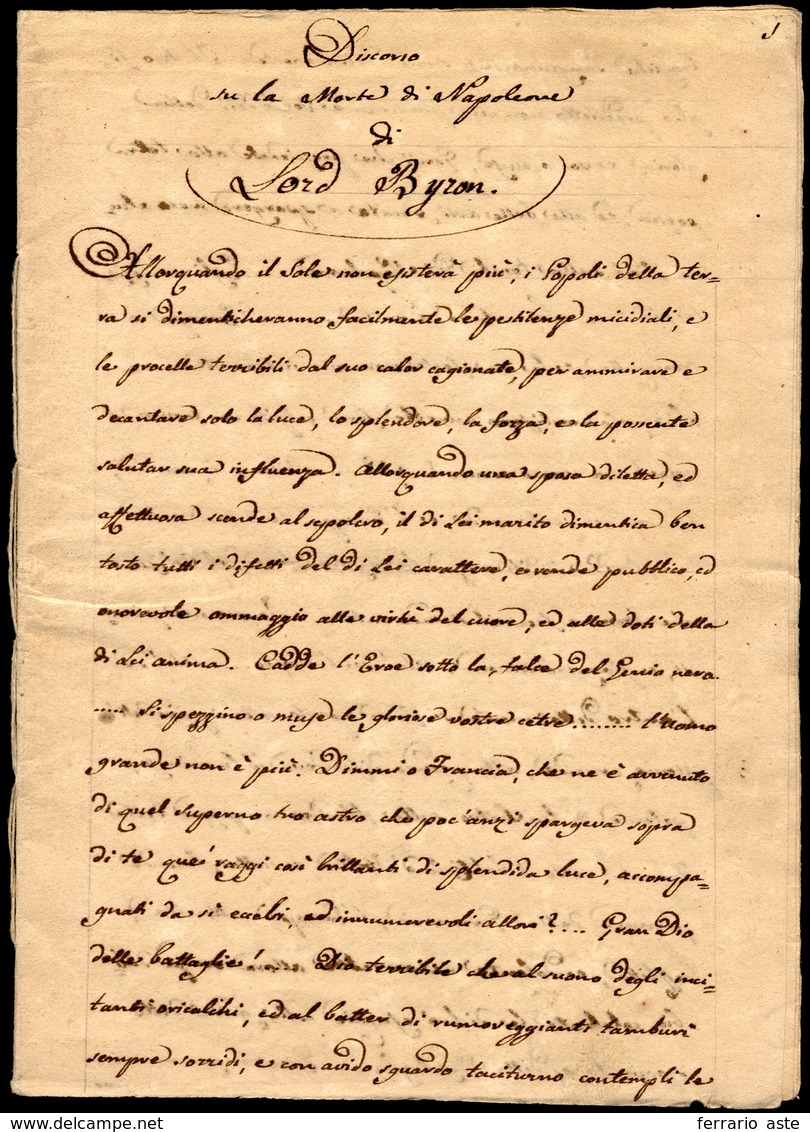 1
Discorso
su la Morte di Napoleone
di
Lord Byron.
Allorquando il Sole non esisterà più, i Popoli della ter-
ra si dimenticheranno facilmente le pestilenze micidiali, e
le procelle terribili dal suo calor cagionate, per ammirare e
decantare solo la luce, lo splendore, la forza, e la possente
salutar sua influenza. Allorquando una sposa diletta, ed
affettuosa scende al sepolcro, il di Lei marito dimentica ben
tosto tutti i difetti del di Lei carattere, e rende pubblico, ed
onorevole ommaggio alle virtù del cuore, ed alle doti della
di Lei anima. Cadde l'Eroe sotto la falce del Genio nero.
..... Si spezzino o muse le gloriose vostre cetre......... l'uomo
grande non è più. Dimmi o Francia, che ne è avvenuto
di quel superno tuo astro che poc'anzi spargeva sopra
di te que' raggi così brillanti di splendida luce, accompa-
gnati da sì celebri, ed innumerevoli allori?.... Gran Dio
delle battaglie!..... Dio terribile che al suono degli inci-
tanti oricalchi, ed al batter di rumoreggianti tamburi
sempre sorridi, e con avido sguardo taciturno contempli le
ferrario aste